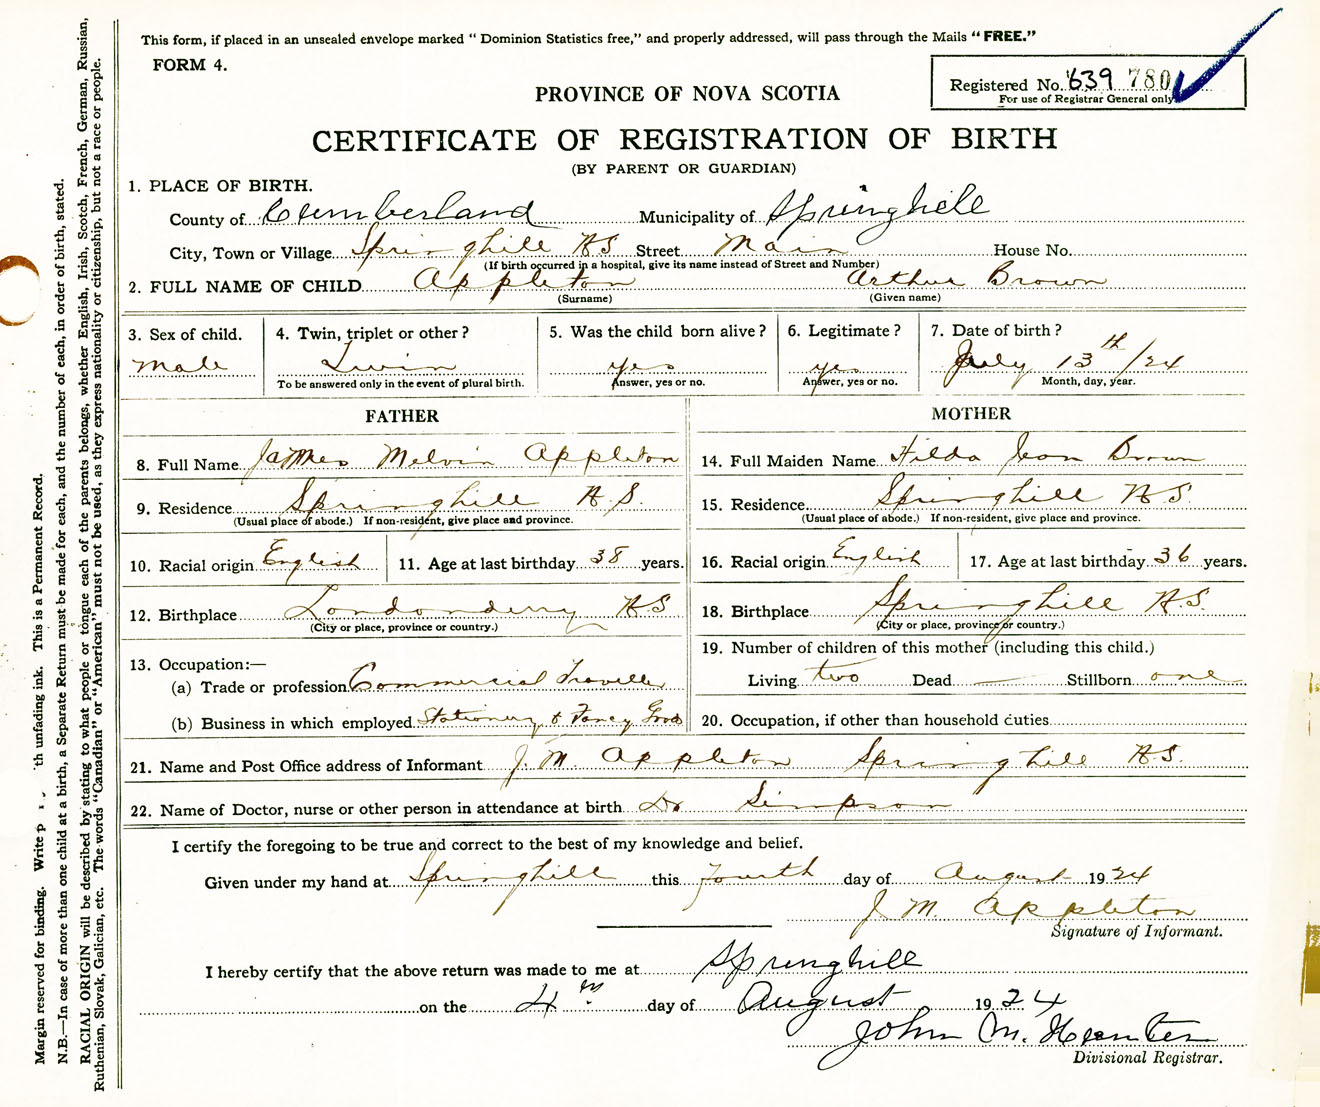 This form, if placed in an unsealed envelope marked "Dominion Statistics free," and properly addressed, will pass through the Mails "FREE."
FORM 4.
Registered No. 639 780
For use of Registrar General only
PROVINCE OF NOVA SCOTIA
CERTIFICATE OF REGISTRATION OF BIRTH
(BY PARENT OR GUARDIAN)
1. PLACE OF BIRTH.
County of Cumberland Municipality of Springhill
City, Town or Village Springhill N S Street Main House No.
(If birth occurred in a hospital, give its name instead of Street and Number)
2. FULL NAME OF CHILD Appleton Arthur Brown
(Surname) (Given name)
3. Sex of child. 4. Twin, triplet or other? 5. Was the child born alive? 6. Legitimate? 7. Date of birth?
Male Twin Yes yes July 13th/24
To be answered only in the event of plural birth. Answer, yes or no. Answer, yes or no. Month, day, year.
FATHER MOTHER
8. Full Name James Melvin Appleton 14. Full Maiden Name Hilda Jean Brown
9. Residence Springhill N.S. 15. Residence Springhill N S
(Usual place of abode.) If non-resident, give place and province. (Usual place of abode.) If non-resident, give place and province.
10. Racial origin English 11. Age at last birthday 38 years. 16. Racial origin English 17. Age at last birthday 36 years.
12. Birthplace Londonderry N S 18. Birthplace Springhill N.S.
(City or place, province or country.) (City or place, province or country.)
13. Occupation:— 19. Number of children of this mother (including this child.)
(a) Trade or profession Commercial Traveller Living two Dead — Stillborn one
(b) Business in which employed Stationery & Fancy Goods 20. Occupation, if other than household duties
21. Name and Post Office address of Informant J. M. Appleton Springhill N.S.
22. Name of Doctor, nurse or other person in attendance at birth Dr Simpson
I certify the foregoing to be true and correct to the best of my knowledge and belief.
Given under my hand at Springhill this fourth day of August 1924
J M. Appleton
Signature of Informant.
I hereby certify that the above return was made to me at Springhill
on the 4th day of August 1924
John M. Hunter
Divisional Registrar.
Margin reserved for binding. Write p th unfading ink. This is a Permanent Record.
N.B.—In case of more than one child at a birth, a Separate Return must be made for each, and the number of each, in order of birth, stated.
RACIAL ORIGIN will be described by stating to what people or tongue each of the parents belongs, whether English, Irish, Scotch, French, German, Russian,
Ruthenian, Slovak, Galician, etc. The words "Canadian" or "American" must not be used, as they express nationality or citizenship, but not a race or people.